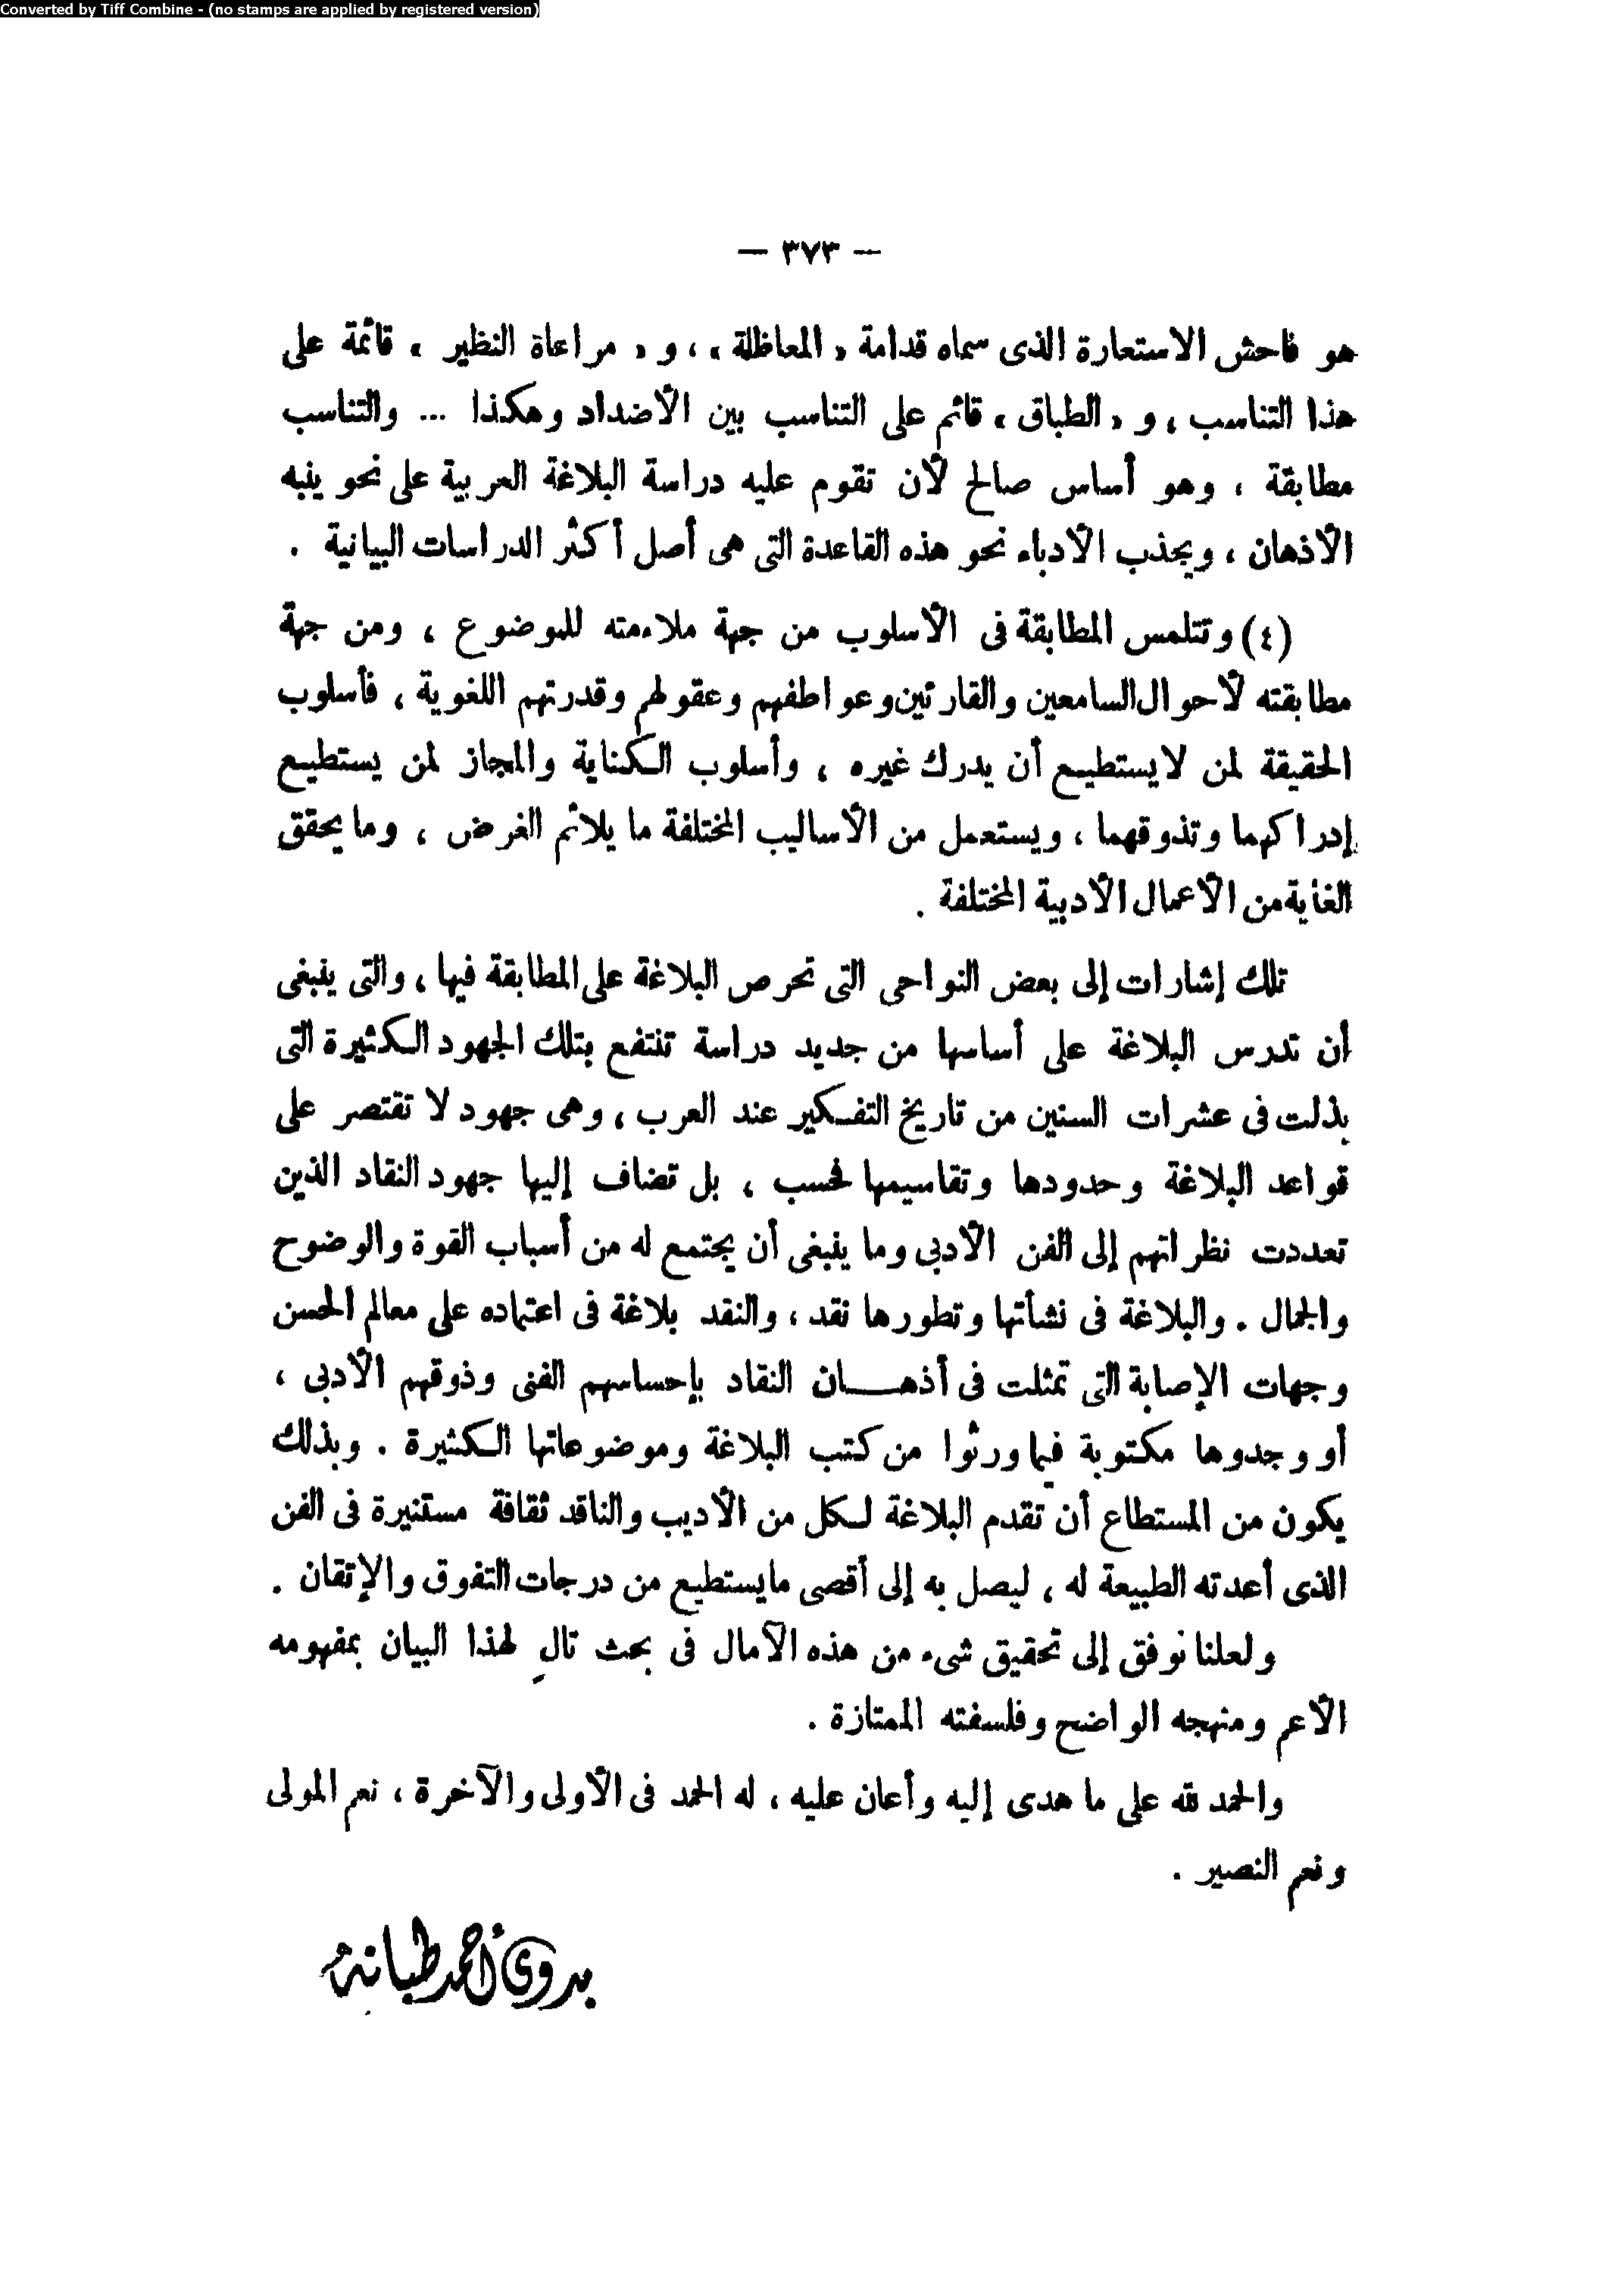 Converted by Tiff Combine - (no stamps are applied by registered version)
— ٣٧٣ —
هو فاحش الاستعارة الذى سماه قدامة « المعاظلة » ، و « مراعاة النظير » قائمة على
هذا التناسب ، و « الطباق » قائم على التناسب بين الأضداد وهكذا ... والتناسب
مطابقة ، وهو أساس صالح لأن تقوم عليه دراسة البلاغة العربية على نحو ينبه
الأذهان ، ويجذب الأدباء نحو هذه القاعدة التى هى أصل أكثر الدراسات البيانية .
(٤) وتتلمس المطابقة فى الأسلوب من جهة ملاءمته للموضوع ، ومن جهة
مطابقته لأحوال السامعين والقارئين وعواطفهم وعقولهم وقدرتهم اللغوية ، فأسلوب
الحقيقة لمن لا يستطيع أن يدرك غيره ، وأسلوب الكناية والمجاز لمن يستطيع
إدراكهما وتذوقهما ، ويستعمل من الأساليب المختلفة ما يلائم الغرض ، وما يحقق
الغاية من الأعمال الأدبية المختلفة .
تلك إشارات إلى بعض النواحى التى تحرص البلاغة على المطابقة فيها ، والتى ينبغى
أن تدرس البلاغة على أساسها من جديد دراسة تنتفع بتلك الجهود الكثيرة التى
بذلت فى عشرات السنين من تاريخ التفكير عند العرب ، وهى جهود لا تقتصر على
قواعد البلاغة وحدودها وتقاسيمها فحسب ، بل تضاف إليها جهود النقاد الذين
تعددت نظراتهم إلى الفن الأدبى وما ينبغى أن يجتمع له من أسباب القوة والوضوح
والجمال . والبلاغة فى نشأتها وتطورها نقد ، والنقد بلاغة فى اعتماده على معالم الحسن
وجهات الإصابة التى تمثلت فى أذهـــان النقاد بإحساسهم الفنى وذوقهم الأدبى ،
أو وجدوها مكتوبة فيما ورثوا من كتب البلاغة وموضوعاتها الكثيرة . وبذلك
يكون من المستطاع أن تقدم البلاغة لكل من الأديب والناقد ثقافة مستنيرة فى الفن
الذى أعدته الطبيعة له ، ليصل به إلى أقصى ما يستطيع من درجات التفوق والإتقان .
ولعلنا نوفق إلى تحقيق شىء من هذه الآمال فى بحث تالٍ لهذا البيان بمفهومه
الأعم ومنهجه الواضح وفلسفته الممتازة .
والحمد لله على ما هدى إليه وأعان عليه ، له الحمد فى الأولى والآخرة ، نعم المولى
ونعم النصير .
بدوى أحمد طبانة